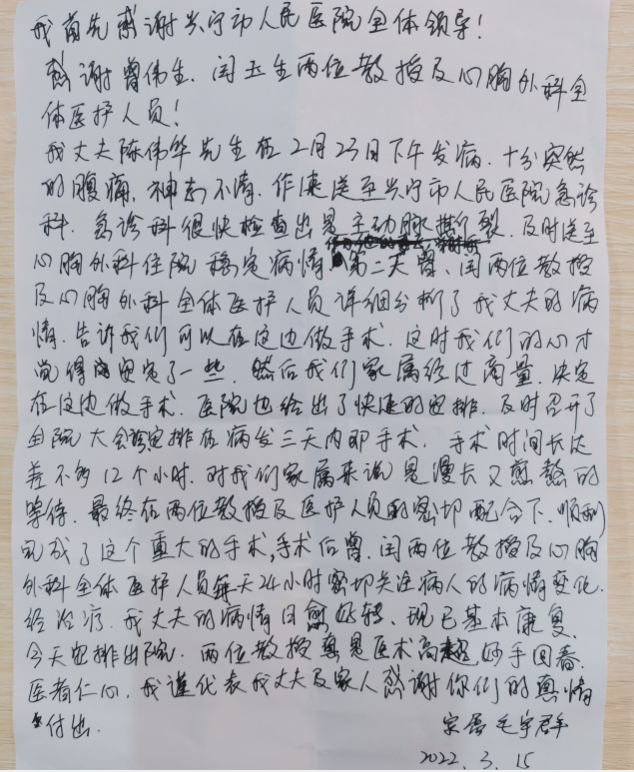 我首先感谢兴宁市人民医院全体领导!
感谢曾伟生、闰玉生两位教授及心胸外科全
体医护人员!
我丈夫陈伟华先生在2月23日下午发病.十分突然
的腹痛.神志不清.作速送至兴宁市人民医院急诊
科.急诊科很快检查出是主动脉撕裂.及时送至
心胸外科住院稳定病情.第二天曾、闰两位教授
及心胸外科全体医护人员详细分析了我丈夫的病
情.告诉我们可以在这边做手术.这时我们的心才
觉得安定了一些.然后我们家属经过商量.决定
在这边做手术.医院也给出了快速的安排.及时召开了
全院大会诊安排在病发三天内即手术.手术时间长达
差不多12个小时.对我们家属来说是漫长又煎熬的
等待.最终在两位教授及医护人员的密切配合下.顺利
完成了这个重大的手术,手术后曾、闰两位教授及心胸
外科全体医护人员每天24小时密切关注病人的病情变化.
经治疗.我丈夫的病情日愈好转、现已基本康复.
今天安排出院.两位教授真是医术高超妙手回春.
医者仁心.我谨代表我丈夫及家人感谢你们的真情
付出.
家属毛宇群
2022.3.15